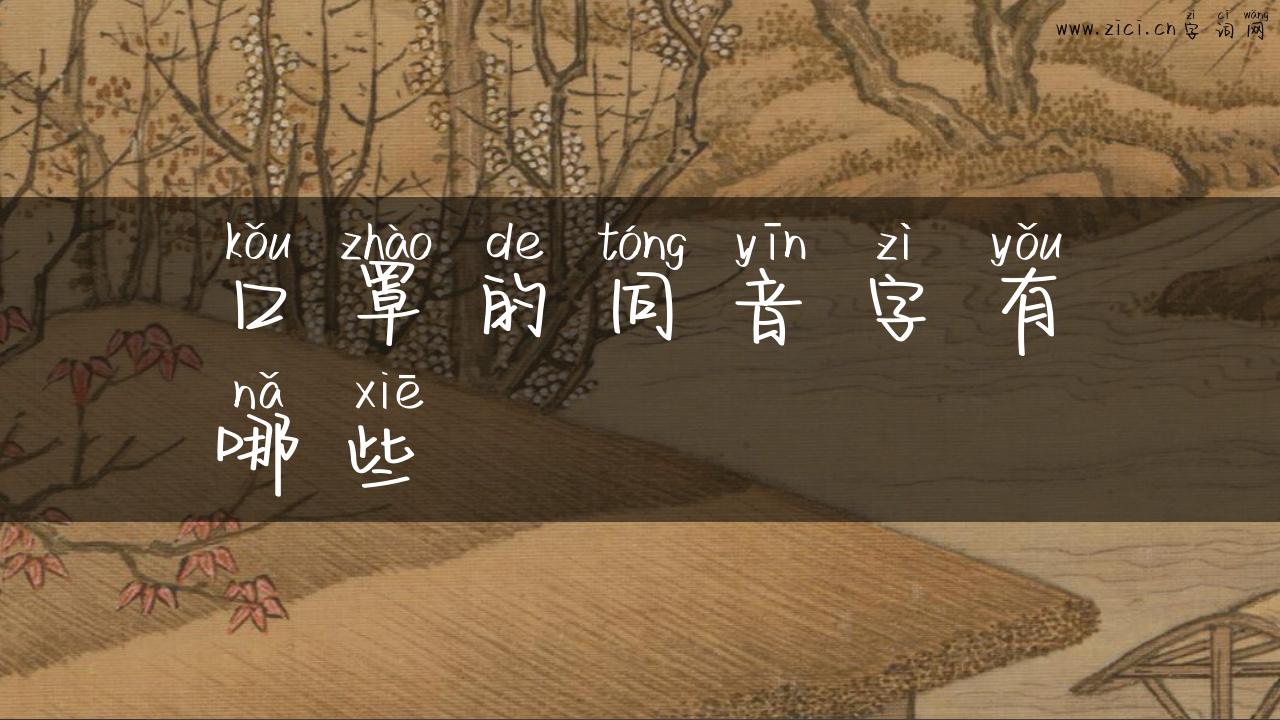 zì cí wǎng
www.zici.cn字词网
kǒu zhào de tóng yīn zì yǒu
口罩的同音字有
nǎ xiē
哪些